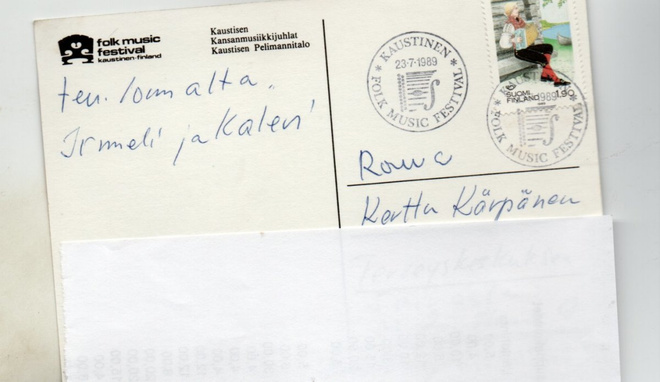 folk music
festival
kaustinen-finland
Kaustisen
Kansanmusiikkijuhlat
Kaustisen Pelimannitalo
KAUSTINEN
23-7-1989
FOLK MUSIC FESTIVAL
SUOMI
FINLAND 1,90
KAUSTINEN
1989
FOLK MUSIC FESTIVAL
terv. lomalta.
Irmeli ja Kalevi
Rouva
Kerttu Kärpänen